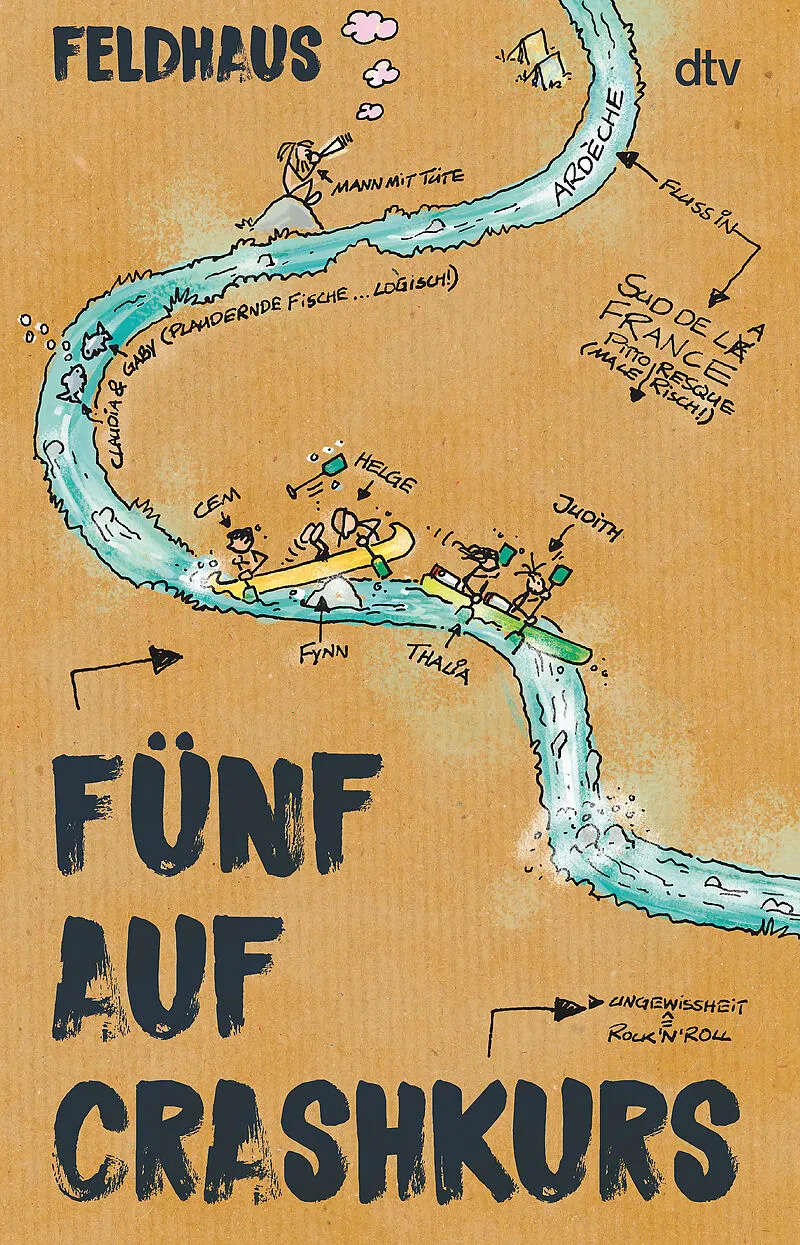 FELDHAUS
dtv
ARDÈCHE
MANN MIT TÜTE
FLUSS IN
SUD DE LA
FRANCE
PITTORESQUE
(MALERISCH!)
CLAUDIA & GABY (PLAUDERNDE FISCHE... LOGISCH!)
CEM
HELGE
JUDITH
FYNN
THALIA
FÜNF
AUF
CRASHKURS
UNGEWISSHEIT
ROCK'N'ROLL